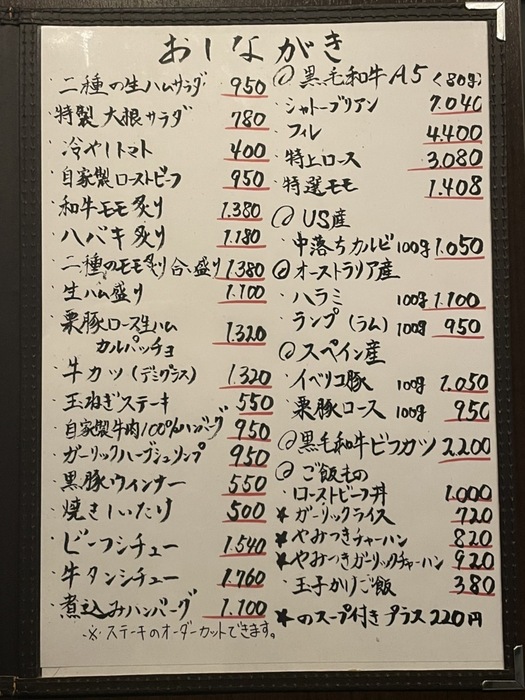 おしながき
・二種の生ハムサラダ 950
・特製大根サラダ 780
・冷やしトマト 400
・自家製ローストビーフ 950
・和牛モモ炙り 1.380
・ハバキ炙り 1.180
・二種のモモ炙り合盛り 1.380
・生ハム盛り 1.100
・栗豚ロース生ハム
カルパッチョ 1.320
・牛カツ(デミグラス) 1.320
・玉ねぎステーキ 550
・自家製牛肉100%ハンバーグ 950
・ガーリックハーブシュリンプ 950
・黒豚ウィンナー 550
・焼きしいたけ 500
・ビーフシチュー 1.540
・牛タンシチュー 1.760
・煮込みハンバーグ 1.100
-※ステーキのオーダーカットできます。
◎黒毛和牛A5 (80g)
・シャトーブリアン 7.040
・フィレ 4.400
・特上ロース 3,080
・特選モモ 1.408
◎US産
・中落ちカルビ 100g 1.050
◎オーストラリア産
・ハラミ 100g 1.100
・ランプ(ラム) 100g 950
◎スペイン産
・イベリコ豚 100g 1.050
・栗豚ロース 100g 950
◎黒毛和牛ビフカツ 2.200
◎ご飯もの
・ローストビーフ丼 1.000
★ガーリックライス 720
★やみつきチャーハン 820
★やみつきガーリックチャーハン 920
・玉子かけご飯 380
★のスープ付きプラス220円